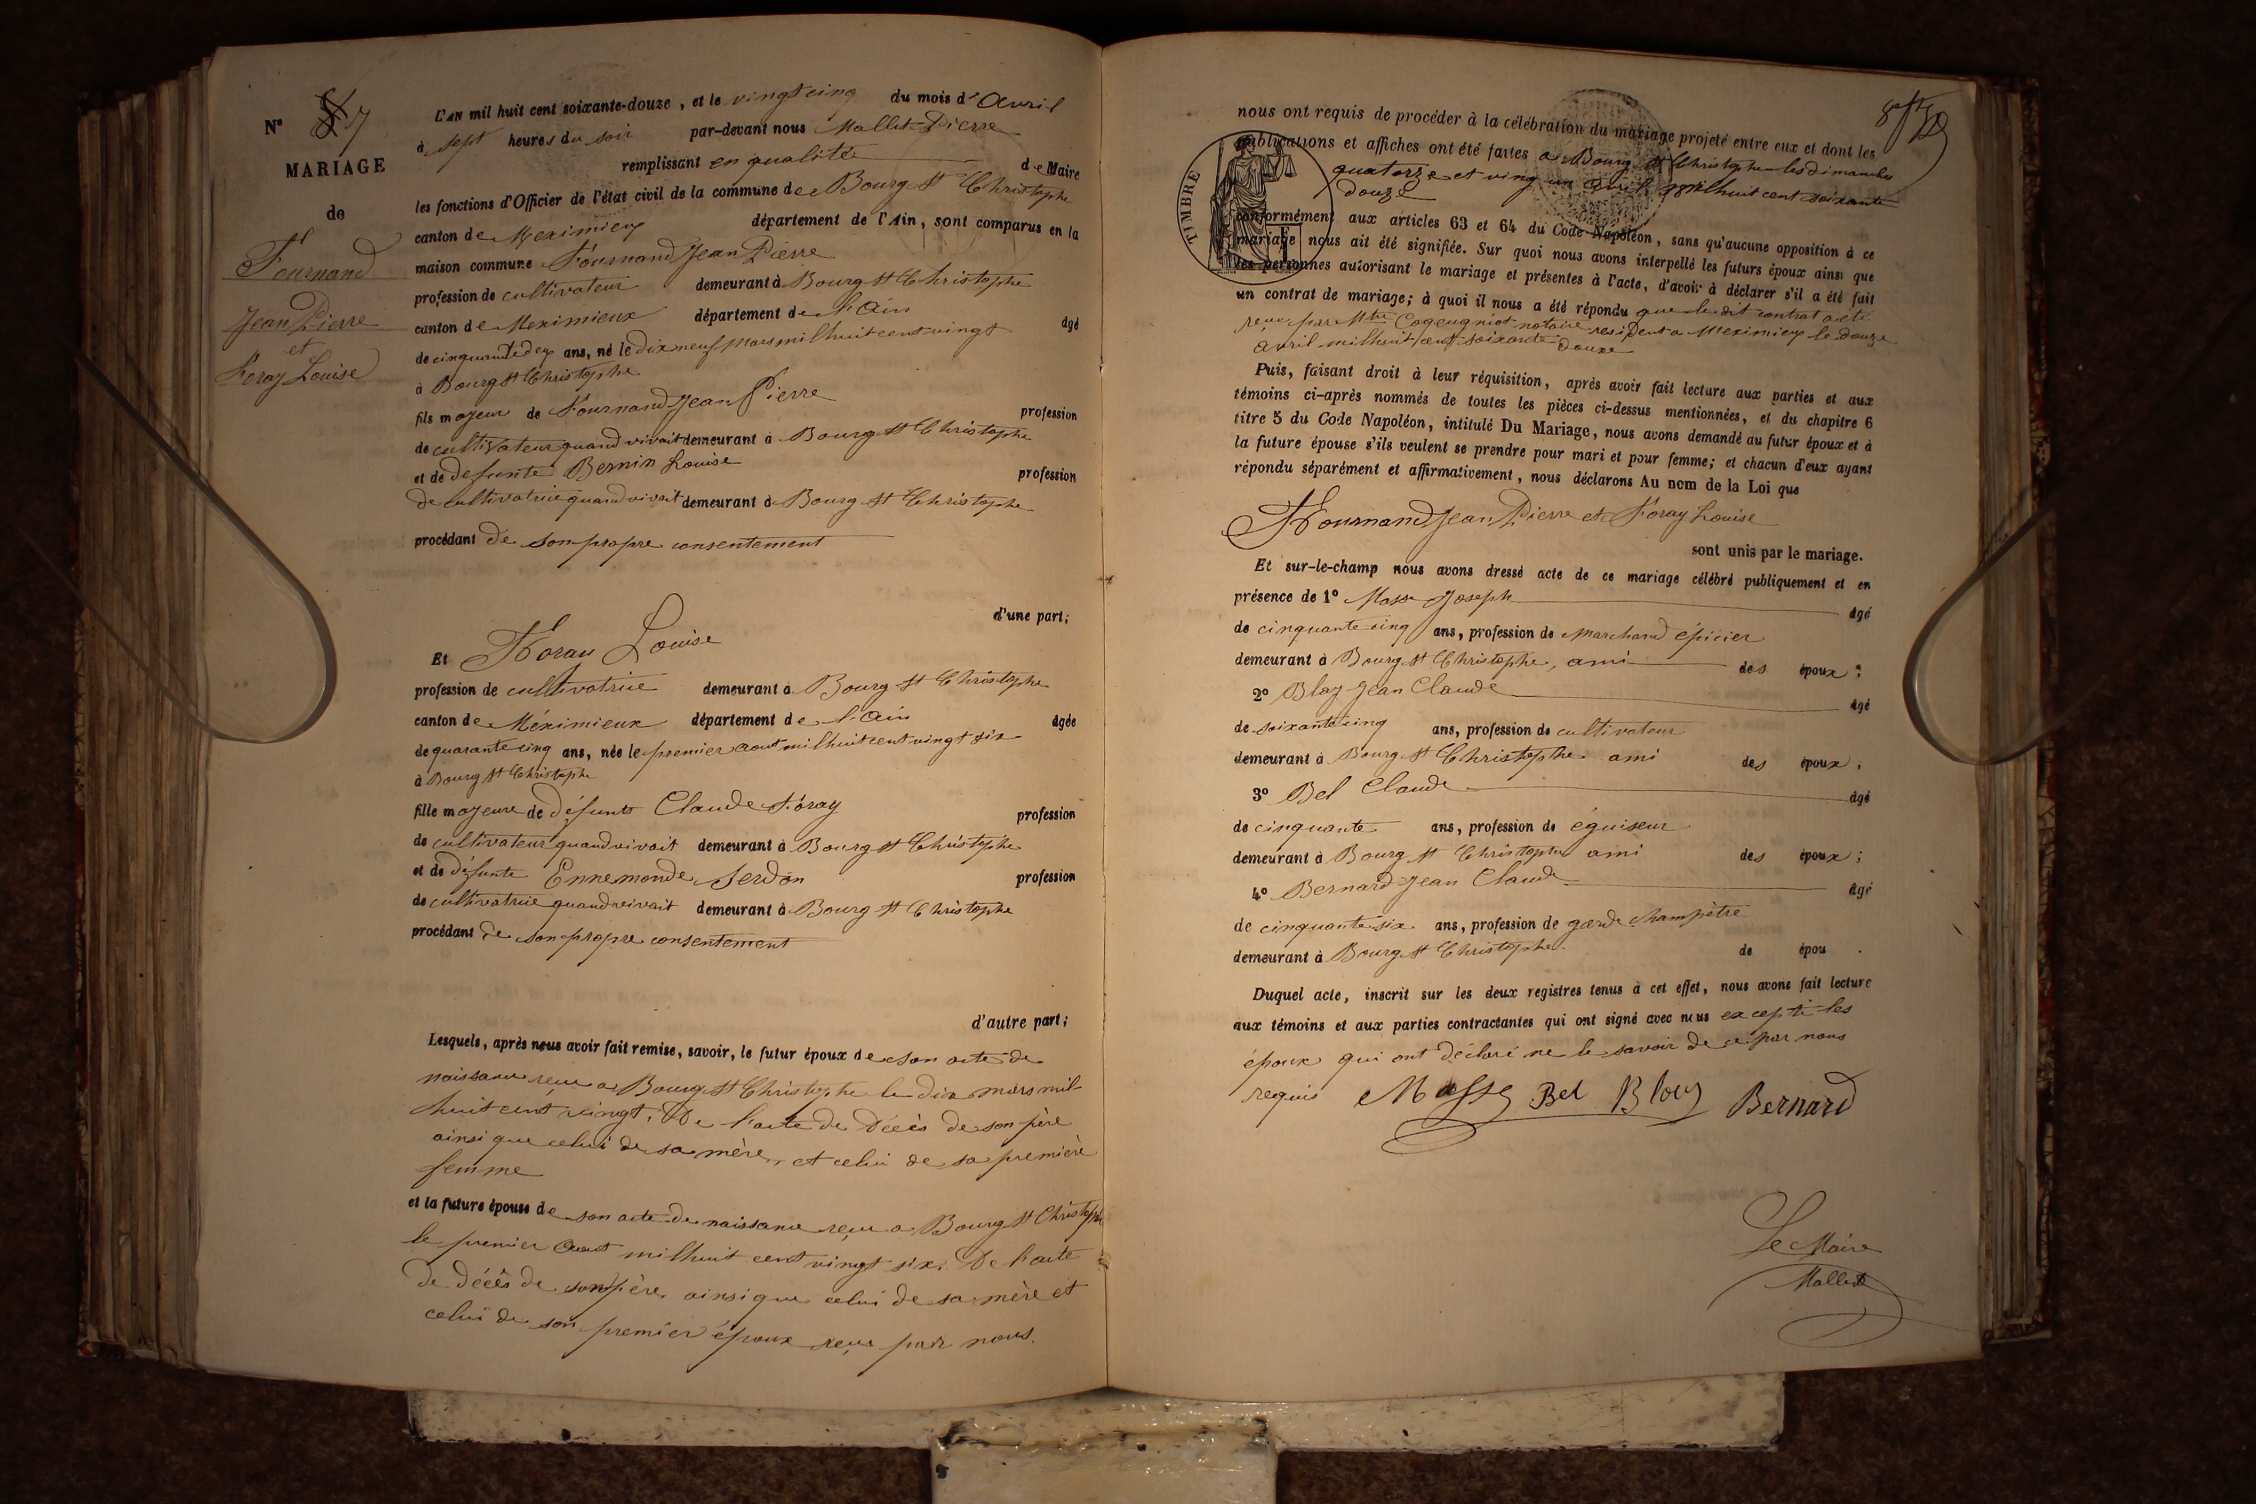 N° 7
MARIAGE
de
Fournand
Jean Pierre
et
Foray Louise
L'an mil huit cent soixante-douze, et le vingt cinq du mois d'Avril
à sept heures du soir par-devant nous Mallet Pierre
remplissant en qualité de Maire
les fonctions d'Officier de l'état civil de la commune de Bourg St Christophe
canton de Meximieux département de l'Ain, sont comparus en la
maison commune Fournand Jean Pierre
profession de cultivateur demeurant à Bourg St Christophe
canton de Meximieux département de l'Ain âgé
de cinquante deux ans, né le dix neuf Mars mil huit cent vingt
à Bourg St Christophe
fils majeur de Fournand Jean Pierre profession
de cultivateur quand vivait demeurant à Bourg St Christophe
et de défunte Bernin Louise profession
de cultivatrice quand vivait demeurant à Bourg St Christophe
procédant de son propre consentement
d'une part;
Et Foray Louise
profession de cultivatrice demeurant à Bourg St Christophe
canton de Méximieux département de l'Ain âgée
de quarante cinq ans, née le premier aout mil huit cent vingt six
à Bourg St Christophe
fille majeure de défunt Claude Foray profession
de cultivateur quand vivait demeurant à Bourg St Christophe
et de défunte Ennemonde Serdon profession
de cultivatrice quand vivait demeurant à Bourg St Christophe
procédant de son propre consentement
d'autre part;
Lesquels, après nous avoir fait remise, savoir, le futur époux de son acte de
naissance reçu a Bourg St Christophe le dix mars mil
huit cent vingt. De l'acte de décès de son père
ainsi que celui de sa mère, et celui de sa première
femme
et la future épouse de son acte de naissance reçu a Bourg St Christophe
le premier Aout mil huit cent vingt six. De l'acte
de décès de son père, ainsi que celui de sa mère et
celui de son premier époux reçus par nous.
nous ont requis de procéder à la célébration du mariage projeté entre eux et dont les
publications et affiches ont été faites a Bourg St Christophe les dimanches
quatorze et vingt un avril mil huit cent soixante
douze
conformément aux articles 63 et 64 du Code Napoléon, sans qu'aucune opposition à ce
mariage nous ait été signifiée. Sur quoi nous avons interpellé les futurs époux ainsi que
les personnes autorisant le mariage et présentes à l'acte, d'avoir à déclarer s'il a été fait
un contrat de mariage; à quoi il nous a été répondu que le dit contrat a été
reçu par Mtre notaire résident a Meximieux le douze
avril mil huit cent soixante douze
Puis, faisant droit à leur réquisition, après avoir fait lecture aux parties et aux
témoins ci-après nommés de toutes les pièces ci-dessus mentionnées, et du chapitre 6
titre 5 du Code Napoléon, intitulé Du Mariage, nous avons demandé au futur époux et à
la future épouse s'ils veulent se prendre pour mari et pour femme; et chacun d'eux ayant
répondu séparément et affirmativement, nous déclarons Au nom de la Loi que
Fournand Jean Pierre et Foray Louise
sont unis par le mariage.
Et sur-le-champ nous avons dressé acte de ce mariage célébré publiquement et en
présence de 1° Masse Joseph âgé
de cinquante cinq ans, profession de marchand épicier
demeurant à Bourg St Christophe, ami des époux;
2° Blay Jean Claude âgé
de soixante cinq ans, profession de cultivateur
demeurant à Bourg St Christophe ami des époux;
3° Bel Claude âgé
de cinquante ans, profession de éguiseur
demeurant à Bourg St Christophe ami des époux;
4° Bernard Jean Claude âgé
de cinquante six ans, profession de garde champètre
demeurant à Bourg St Christophe. de épou .
Duquel acte, inscrit sur les deux registres tenus à cet effet, nous avons fait lecture
aux témoins et aux parties contractantes qui ont signé avec nous excepté les
époux qui ont déclaré ne le savoir de ce par nous
requis Masse Bel Blay Bernard
Le Maire
Mallet
TIMBRE